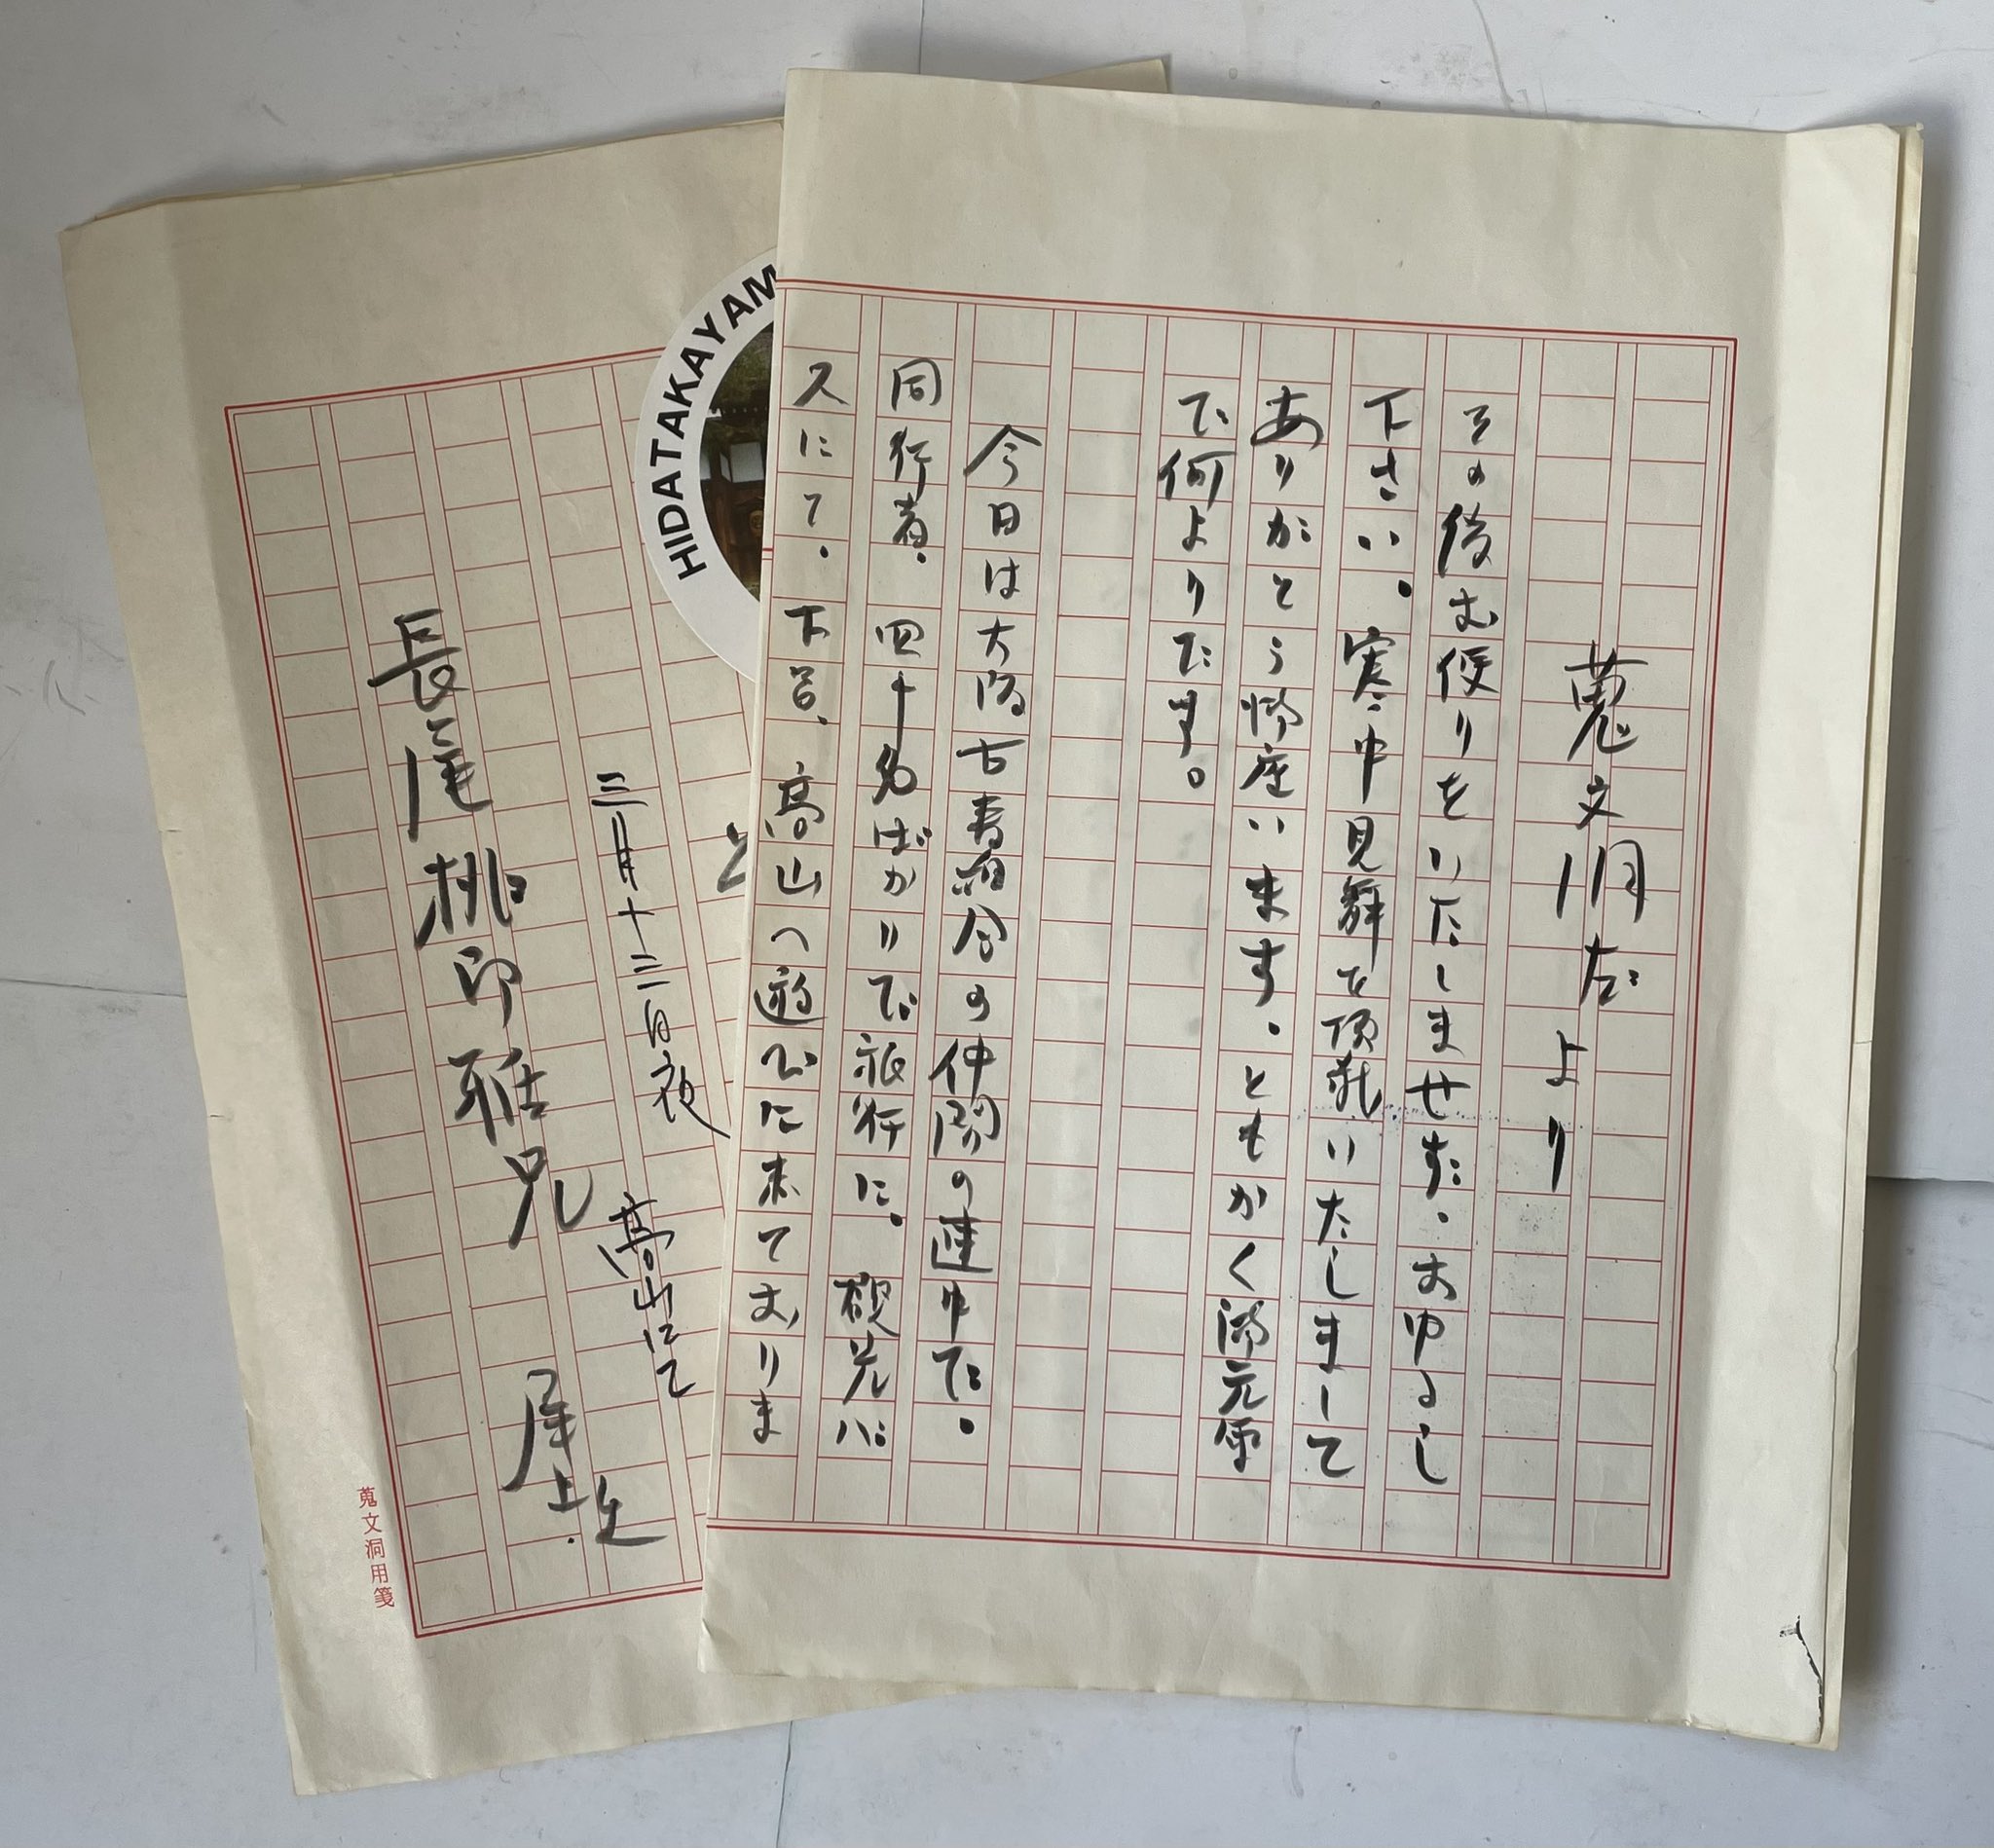 蒐文洞だより
その後お便りをいたしませず。おゆるし
下さい。寒中見舞を頂戴いたしまして
ありがとう御座います。ともかく御元気
で何よりです。
今日は大阪古書組合の仲間の連中で。
同行者。四十名ばかりで旅行に。観光バ
スにて。下呂、高山へ遊びに来ておりま
HIDATAKAYAM
三月十三日夜
高山にて
尾上生
長尾桃印雅兄
蒐文洞用箋